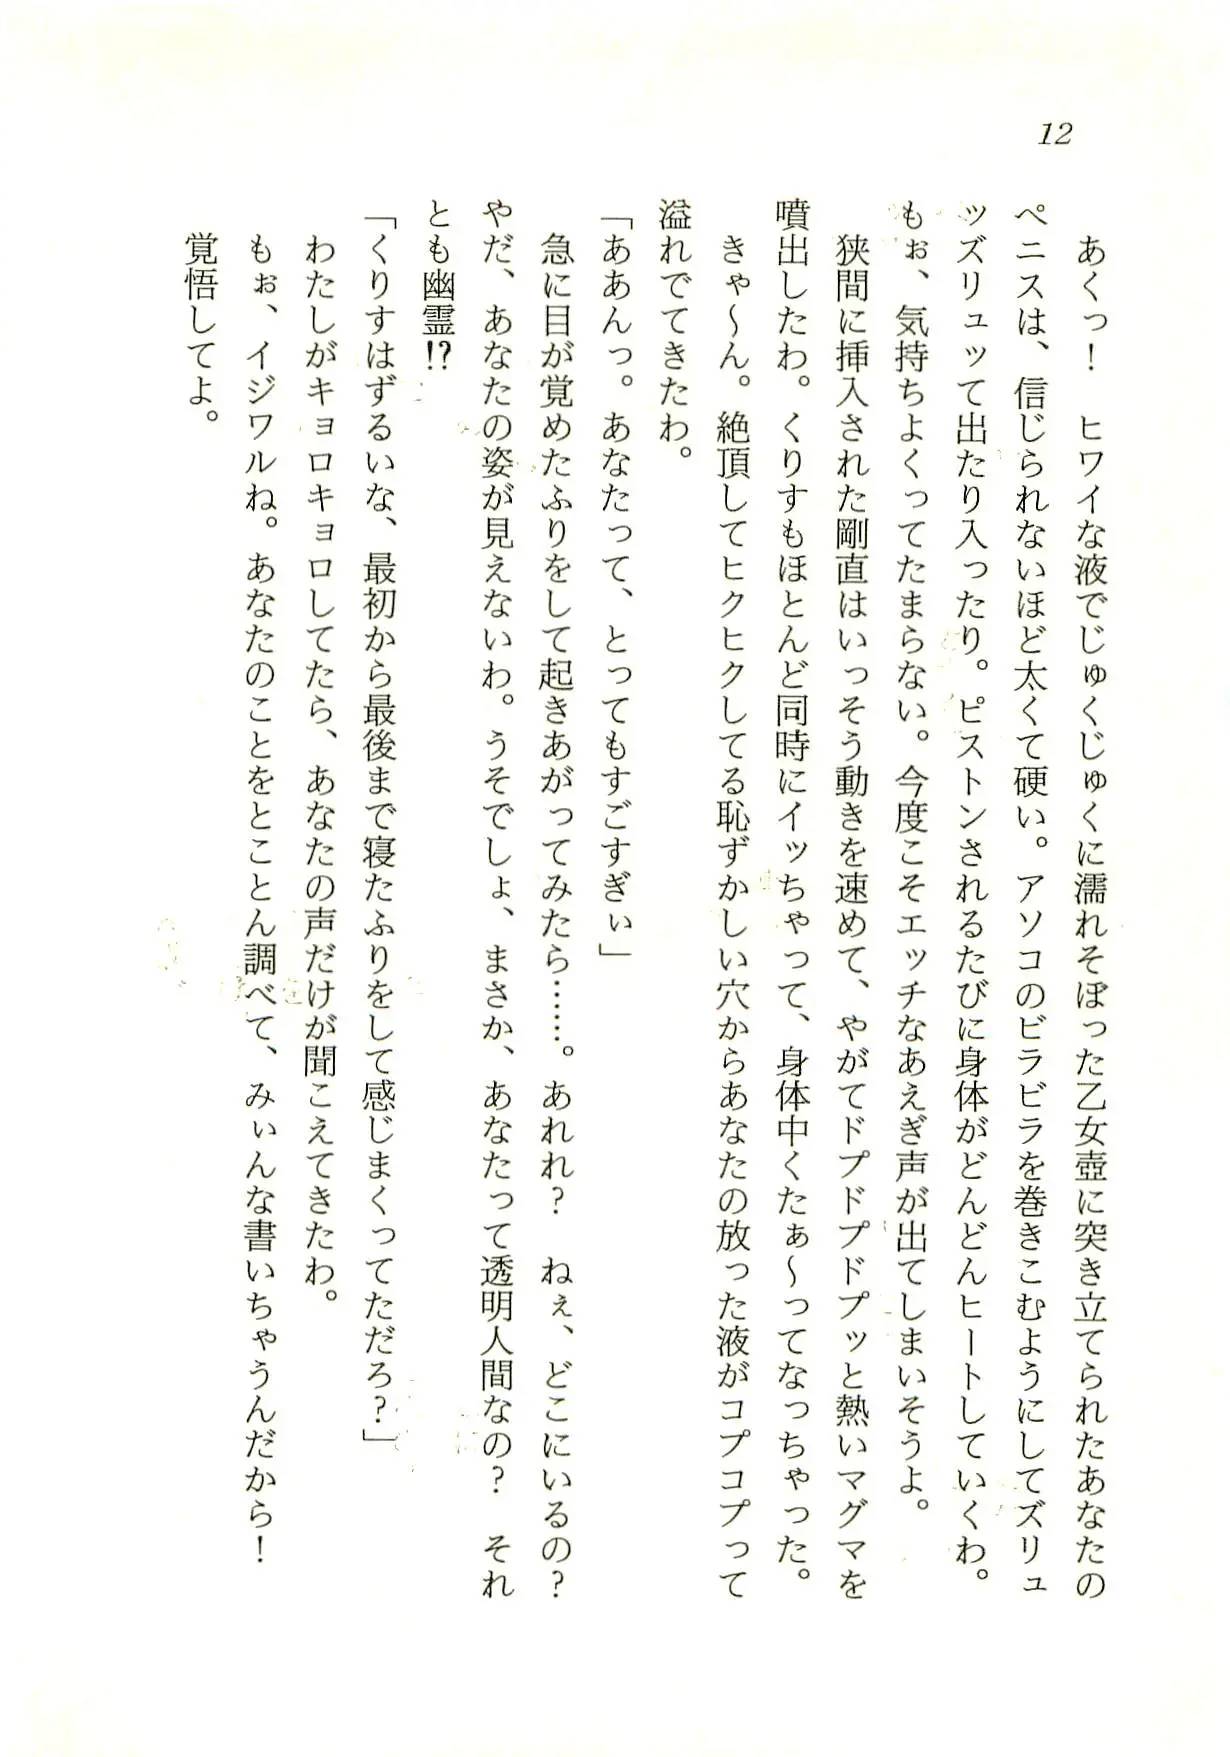 12
あくっ！　ヒワイな液でじゅくじゅくに濡れそぼった乙女壺に突き立てられたあなたの
ペニスは、信じられないほど太くて硬い。アソコのビラビラを巻きこむようにしてズリュ
ッズリュッて出たり入ったり。ピストンされるたびに身体がどんどんヒートしていくわ。
もぉ、気持ちよくってたまらない。今度こそエッチなあえぎ声が出てしまいそうよ。
狭間に挿入された剛直はいっそう動きを速めて、やがてドプドプドプッと熱いマグマを
噴出したわ。くりすもほとんど同時にイッちゃって、身体中くたぁ～ってなっちゃった。
きゃ～ん。絶頂してヒクヒクしてる恥ずかしい穴からあなたの放った液がコプコプって
溢れでてきたわ。
「ああんっ。あなたって、とってもすごすぎぃ」
急に目が覚めたふりをして起きあがってみたら……。あれれ？　ねぇ、どこにいるの？
やだ、あなたの姿が見えないわ。うそでしょ、まさか、あなたって透明人間なの？　それ
とも幽霊!?
「くりすはずるいな、最初から最後まで寝たふりをして感じまくってただろ？」
わたしがキョロキョロしてたら、あなたの声だけが聞こえてきたわ。
もぉ、イジワルね。あなたのことをとことん調べて、みぃんな書いちゃうんだから！
覚悟してよ。